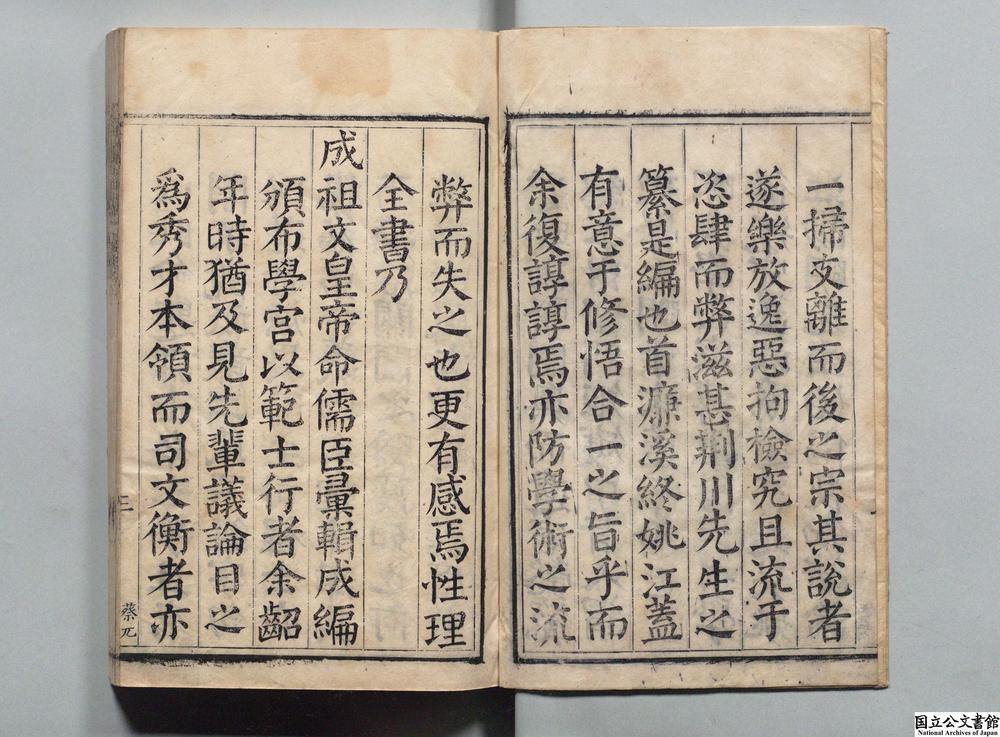 一掃支離而後之宗其説者
遂樂放逸惡拘檢究且流于
恣肆而弊滋甚荆川先生之
纂是編也首濂溪終姚江蓋
有意于修悟合一之旨乎而
余復諄諄焉亦防學術之流
弊而失之也更有感焉性理
全書乃
成祖文皇帝命儒臣彙輯成編
頒布學宫以範士行者余齠
年時猶及見先輩議論目之
爲秀才本領而司文衡者亦
三
蔡兀
国立公文書館
National Archives of Japan